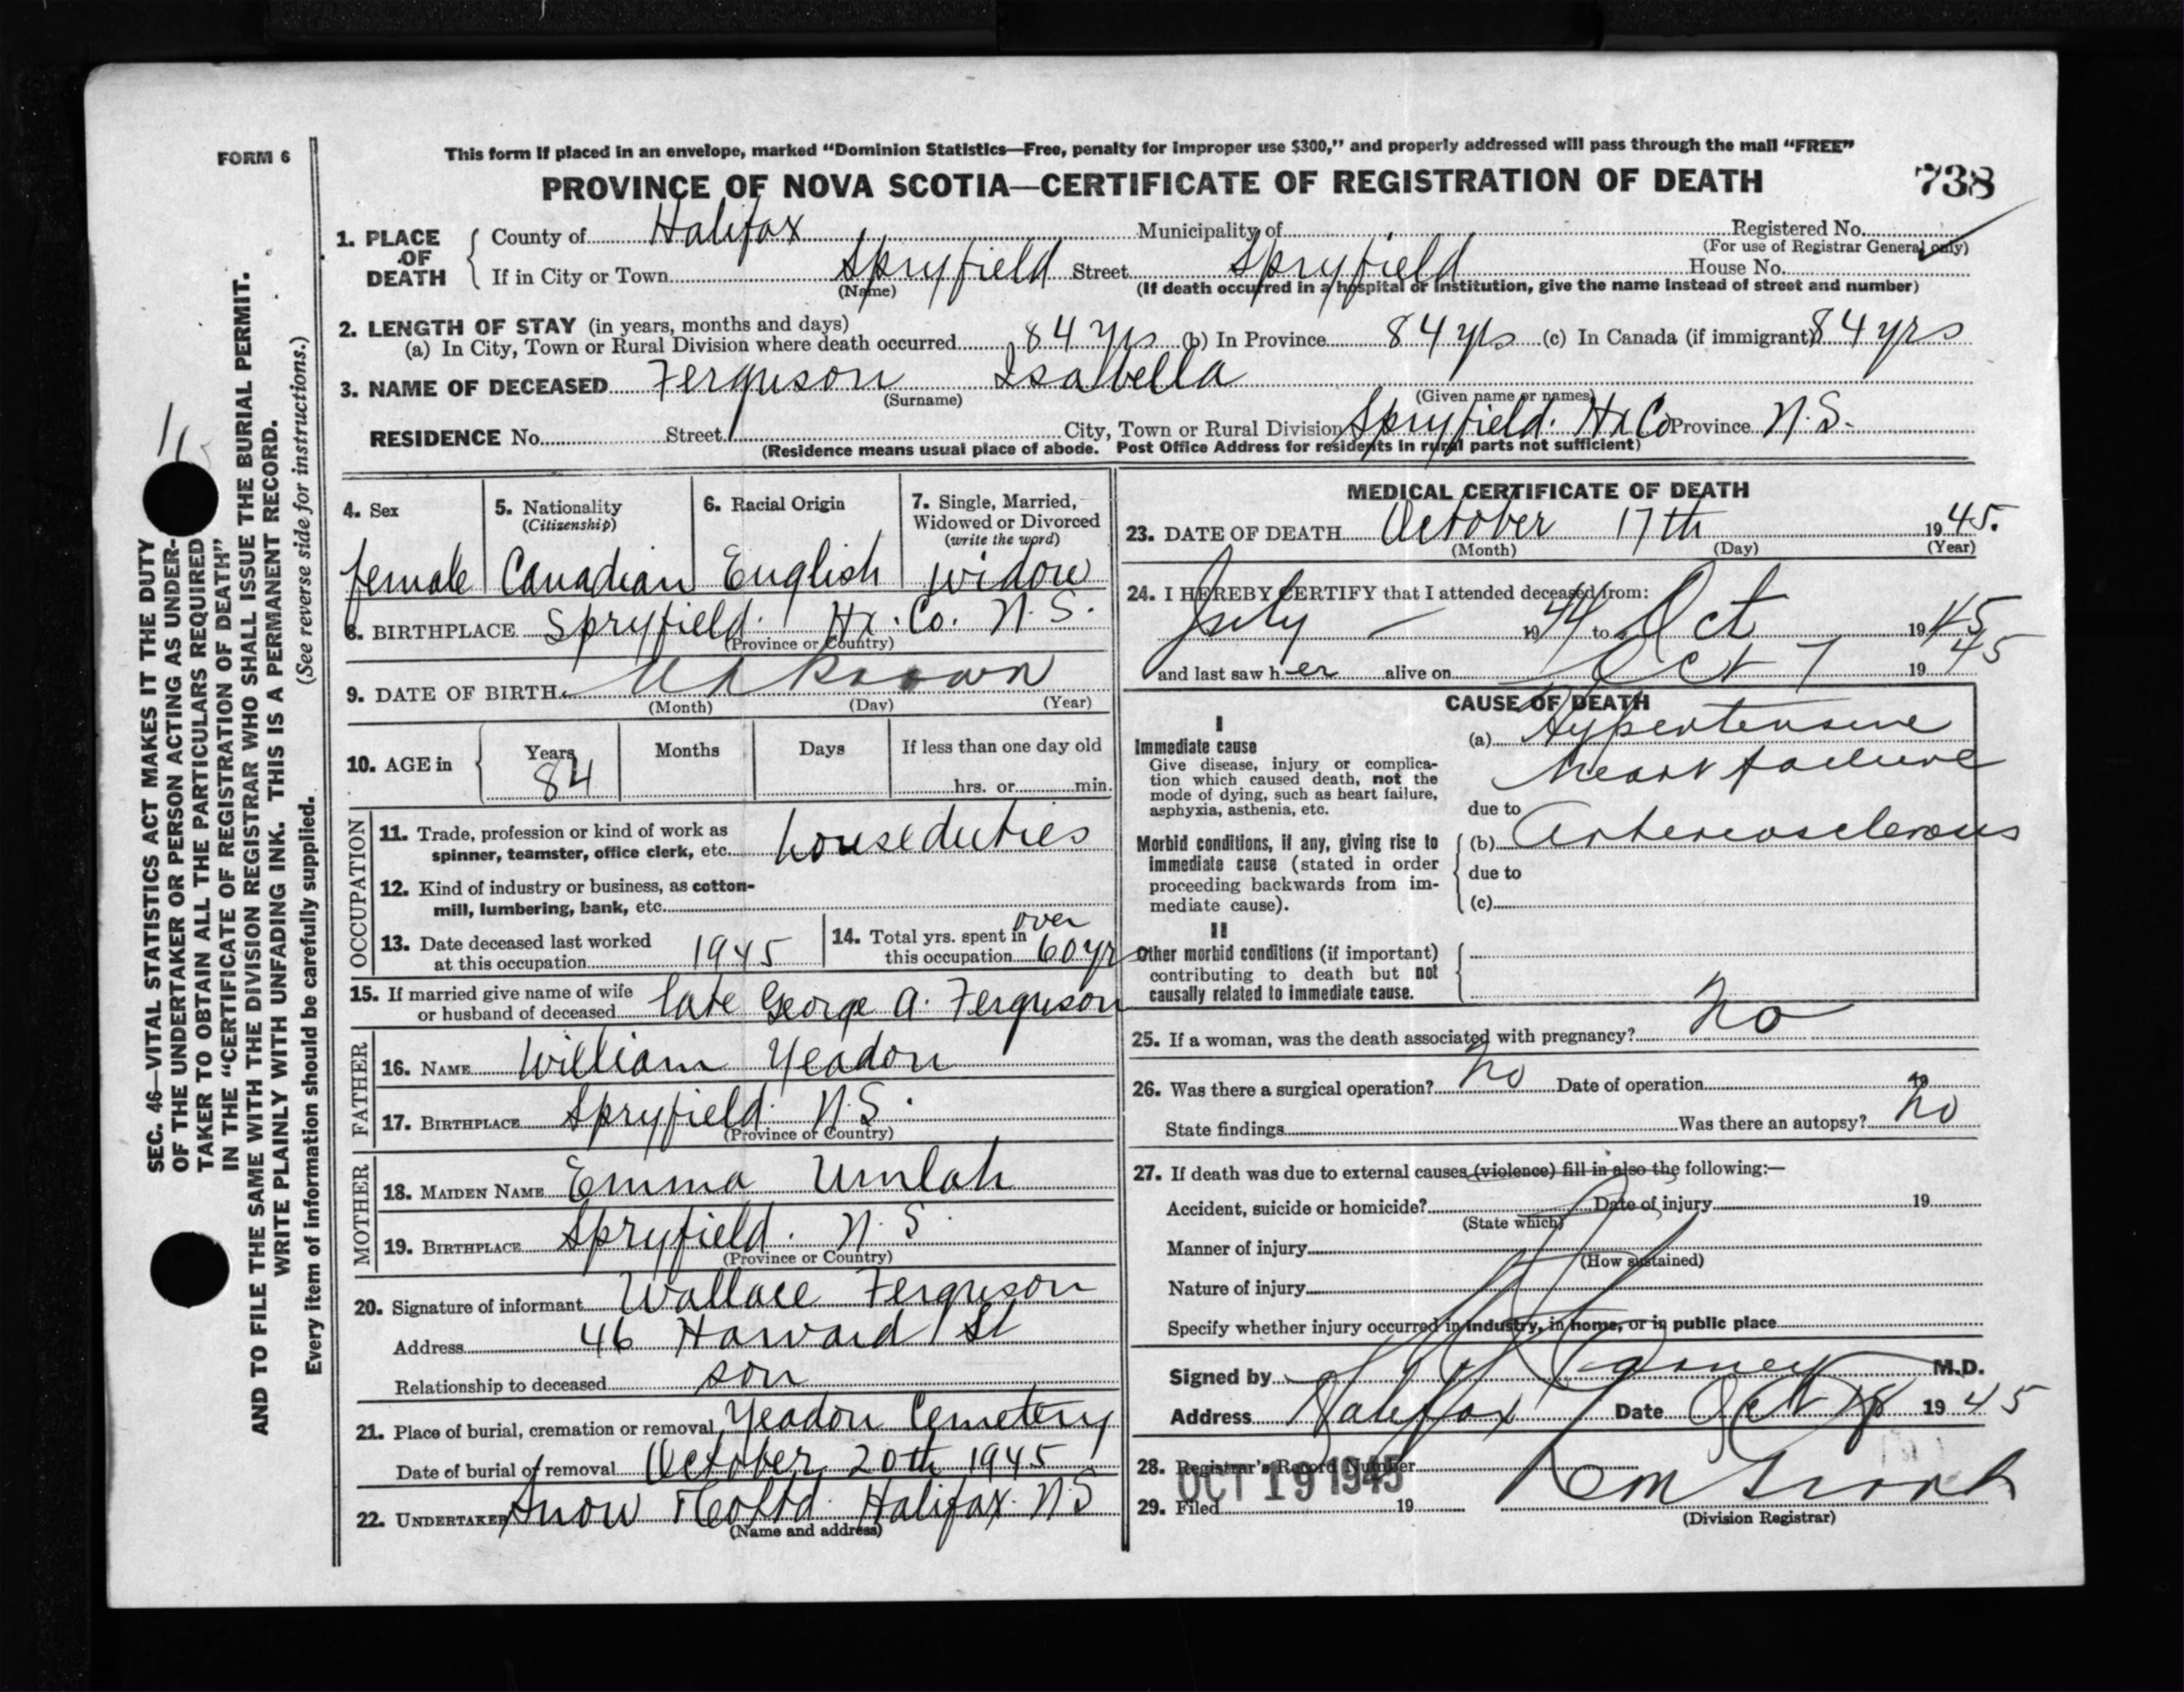 FORM 6
This form if placed in an envelope, marked “Dominion Statistics—Free, penalty for improper use $300,” and properly addressed will pass through the mail “FREE”
PROVINCE OF NOVA SCOTIA—CERTIFICATE OF REGISTRATION OF DEATH
738
1. PLACE OF DEATH
County of Halifax Municipality of Registered No.
(For use of Registrar General only)
If in City or Town Spryfield Street Spryfield House No.
(Name) (If death occurred in a hospital or institution, give the name instead of street and number)
2. LENGTH OF STAY (in years, months and days)
(a) In City, Town or Rural Division where death occurred 84 yrs (b) In Province 84 yrs (c) In Canada (if immigrant) 84 yrs
3. NAME OF DECEASED Ferguson Isabella
(Surname) (Given name or names)
RESIDENCE No. Street City, Town or Rural Division Spryfield. Hx Co Province N.S.
(Residence means usual place of abode. Post Office Address for residents in rural parts not sufficient)
4. Sex
female
5. Nationality
(Citizenship)
Canadian
6. Racial Origin
English
7. Single, Married,
Widowed or Divorced
(write the word)
widow
8. BIRTHPLACE Spryfield. Hx. Co. N.S.
(Province or Country)
9. DATE OF BIRTH Unknown
(Month) (Day) (Year)
10. AGE in
Years Months Days If less than one day old
84 hrs. or min.
OCCUPATION
11. Trade, profession or kind of work as
spinner, teamster, office clerk, etc. houseduties
12. Kind of industry or business, as cotton-
mill, lumbering, bank, etc.
13. Date deceased last worked
at this occupation 1945
14. Total yrs. spent in over
this occupation 60 yr
15. If married give name of wife
or husband of deceased late George A. Ferguson
FATHER
16. NAME William Yeadon
17. BIRTHPLACE Spryfield. N.S.
(Province or Country)
MOTHER
18. MAIDEN NAME Emma Umlah
19. BIRTHPLACE Spryfield. N.S.
(Province or Country)
20. Signature of informant Wallace Ferguson
Address 46 Harvard St
Relationship to deceased son
21. Place of burial, cremation or removal Yeadon Cemetery
Date of burial or removal October 20th 1945
22. UNDERTAKER Snow & Co Ltd. Halifax. N.S
(Name and address)
MEDICAL CERTIFICATE OF DEATH
23. DATE OF DEATH October 17th 1945.
(Month) (Day) (Year)
24. I HEREBY CERTIFY that I attended deceased from:
July — 1944 to Oct 1945
and last saw her alive on Oct 7 1945
CAUSE OF DEATH
I
Immediate cause
Give disease, injury or complica-
tion which caused death, not the
mode of dying, such as heart failure,
asphyxia, asthenia, etc.
(a) Hypertensive
heart failure
due to
Morbid conditions, if any, giving rise to
immediate cause (stated in order
proceeding backwards from im-
mediate cause).
(b) Arteriosclerosis
due to
(c)
II
Other morbid conditions (if important)
contributing to death but not
causally related to immediate cause.
25. If a woman, was the death associated with pregnancy? no
26. Was there a surgical operation? no Date of operation 19
State findings Was there an autopsy? no
27. If death was due to external causes (violence) fill in also the following:—
Accident, suicide or homicide? Date of injury 19
(State which)
Manner of injury
(How sustained)
Nature of injury
Specify whether injury occurred in industry, in home, or in public place
Signed by M.D.
Address Halifax Date Oct 18 1945
28. Registrar's Record Number
OCT 19 1945
29. Filed 19
(Division Registrar)
SEC. 46—VITAL STATISTICS ACT MAKES IT THE DUTY
OF THE UNDERTAKER OR PERSON ACTING AS UNDER-
TAKER TO OBTAIN ALL THE PARTICULARS REQUIRED
IN THE “CERTIFICATE OF REGISTRATION OF DEATH”
AND TO FILE THE SAME WITH THE DIVISION REGISTRAR WHO SHALL ISSUE THE BURIAL PERMIT.
WRITE PLAINLY WITH UNFADING INK. THIS IS A PERMANENT RECORD.
Every item of information should be carefully supplied. (See reverse side for instructions.)